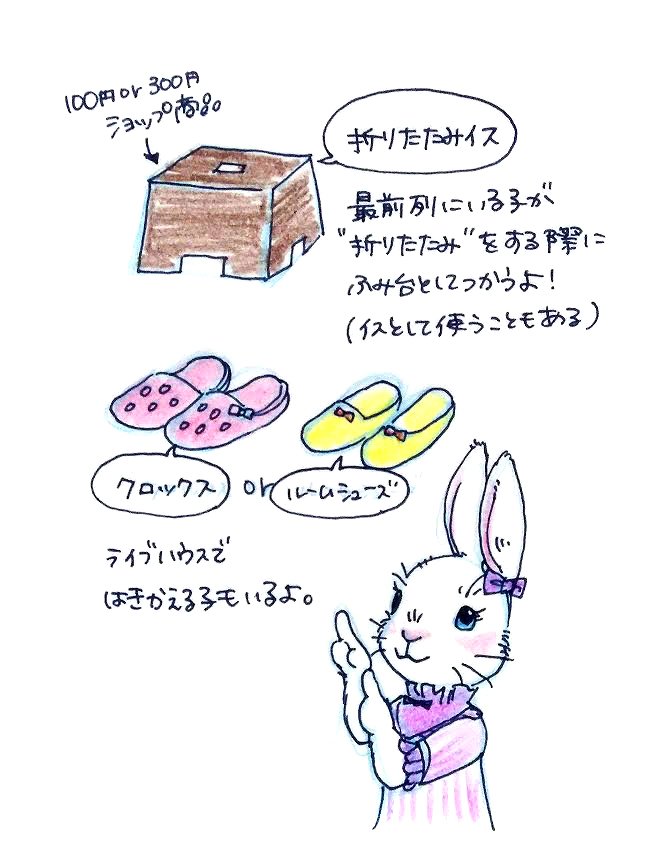 100円or300円
ショップ商品
折りたたみイス
最前列にいる子が
"折りたたみ"をする際に
ふみ台としてつかうよ!
(イスとして使うこともある)
クロックス or ルームシューズ
ライブハウスで
はきかえる子もいるよ。